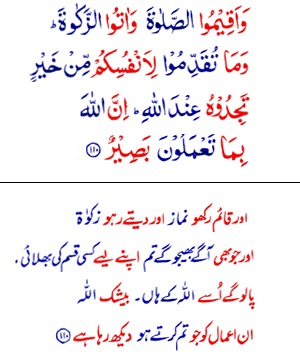 وَاَقِيْمُوا الصَّلٰوةَ وَاٰتُوا الزَّكٰوةَ ؕ
وَمَا تُقَدِّمُوْا لِاَنْفُسِكُمْ مِّنْ خَيْرٍ
تَجِدُوْهُ عِنْدَ اللّٰهِ ؕ اِنَّ اللّٰهَ
بِمَا تَعْمَلُوْنَ بَصِيْرٌ ﴿۱۱۰﴾
اور قائم رکھو نماز اور دیتے رہو زکوٰۃ
اور جو بھی آگے بھیجو گے تم اپنے لیے کسی قسم کی بھلائی،
پالو گے اُسے اللہ کے ہاں۔ بیشک اللہ
ان اعمال کو جو تم کرتے ہو دیکھ رہا ہے ﴿۱۱۰﴾